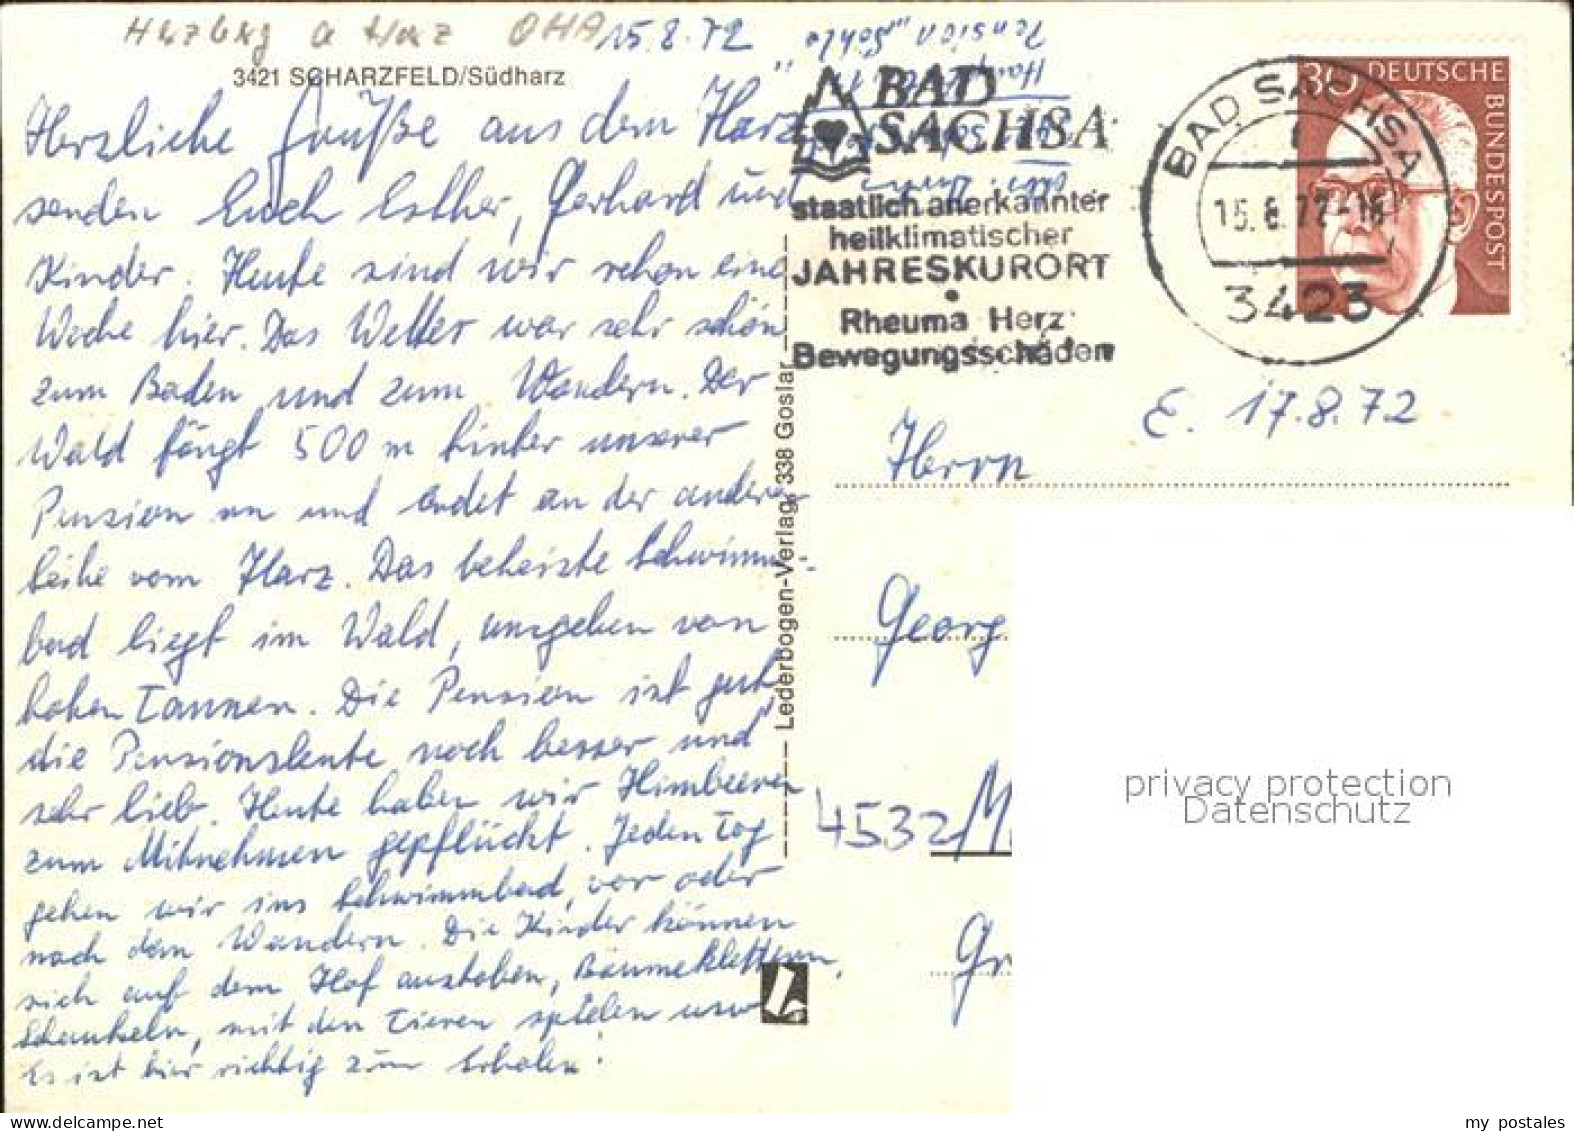 Herzberg a Harz OHA 15.8.72
3421 SCHARZFELD/Südharz
Herzliche Grüße aus dem Harz
senden Euch Esther, Gerhard und
Kinder. Heute sind wir schon eine
Woche hier. Das Wetter war sehr schön
zum Baden und zum Wandern. Der
Wald fängt 500 m hinter unserer
Pension an und endet an der anderen
Seite vom Harz. Das beheizte Schwimm-
bad liegt im Wald, umgeben von
hohen Tannen. Die Pension ist gut,
die Pensionsleute noch besser und
sehr lieb. Heute haben wir Himbeeren
zum Mitnehmen gepflückt. Jeden Tag
gehen wir ins Schwimmbad, vor oder
nach dem Wandern. Die Kinder können
sich auf dem Hof austoben, Bäume klettern,
Schaukeln, mit den Tieren spielen usw
Es ist hier richtig zum Erholen!
Pension
Lederbogen-Verlag, 338 Goslar
BAD
SACHSA
staatlich anerkannter
heilklimatischer
JAHRESKURORT
Rheuma Herz
Bewegungsschäden
BAD SACHSA
15.8.72-18
3423
30 DEUTSCHE
BUNDESPOST
E. 17.8.72
Herrn
Georg
4532/M
Gr
privacy protection
Datenschutz
my postales